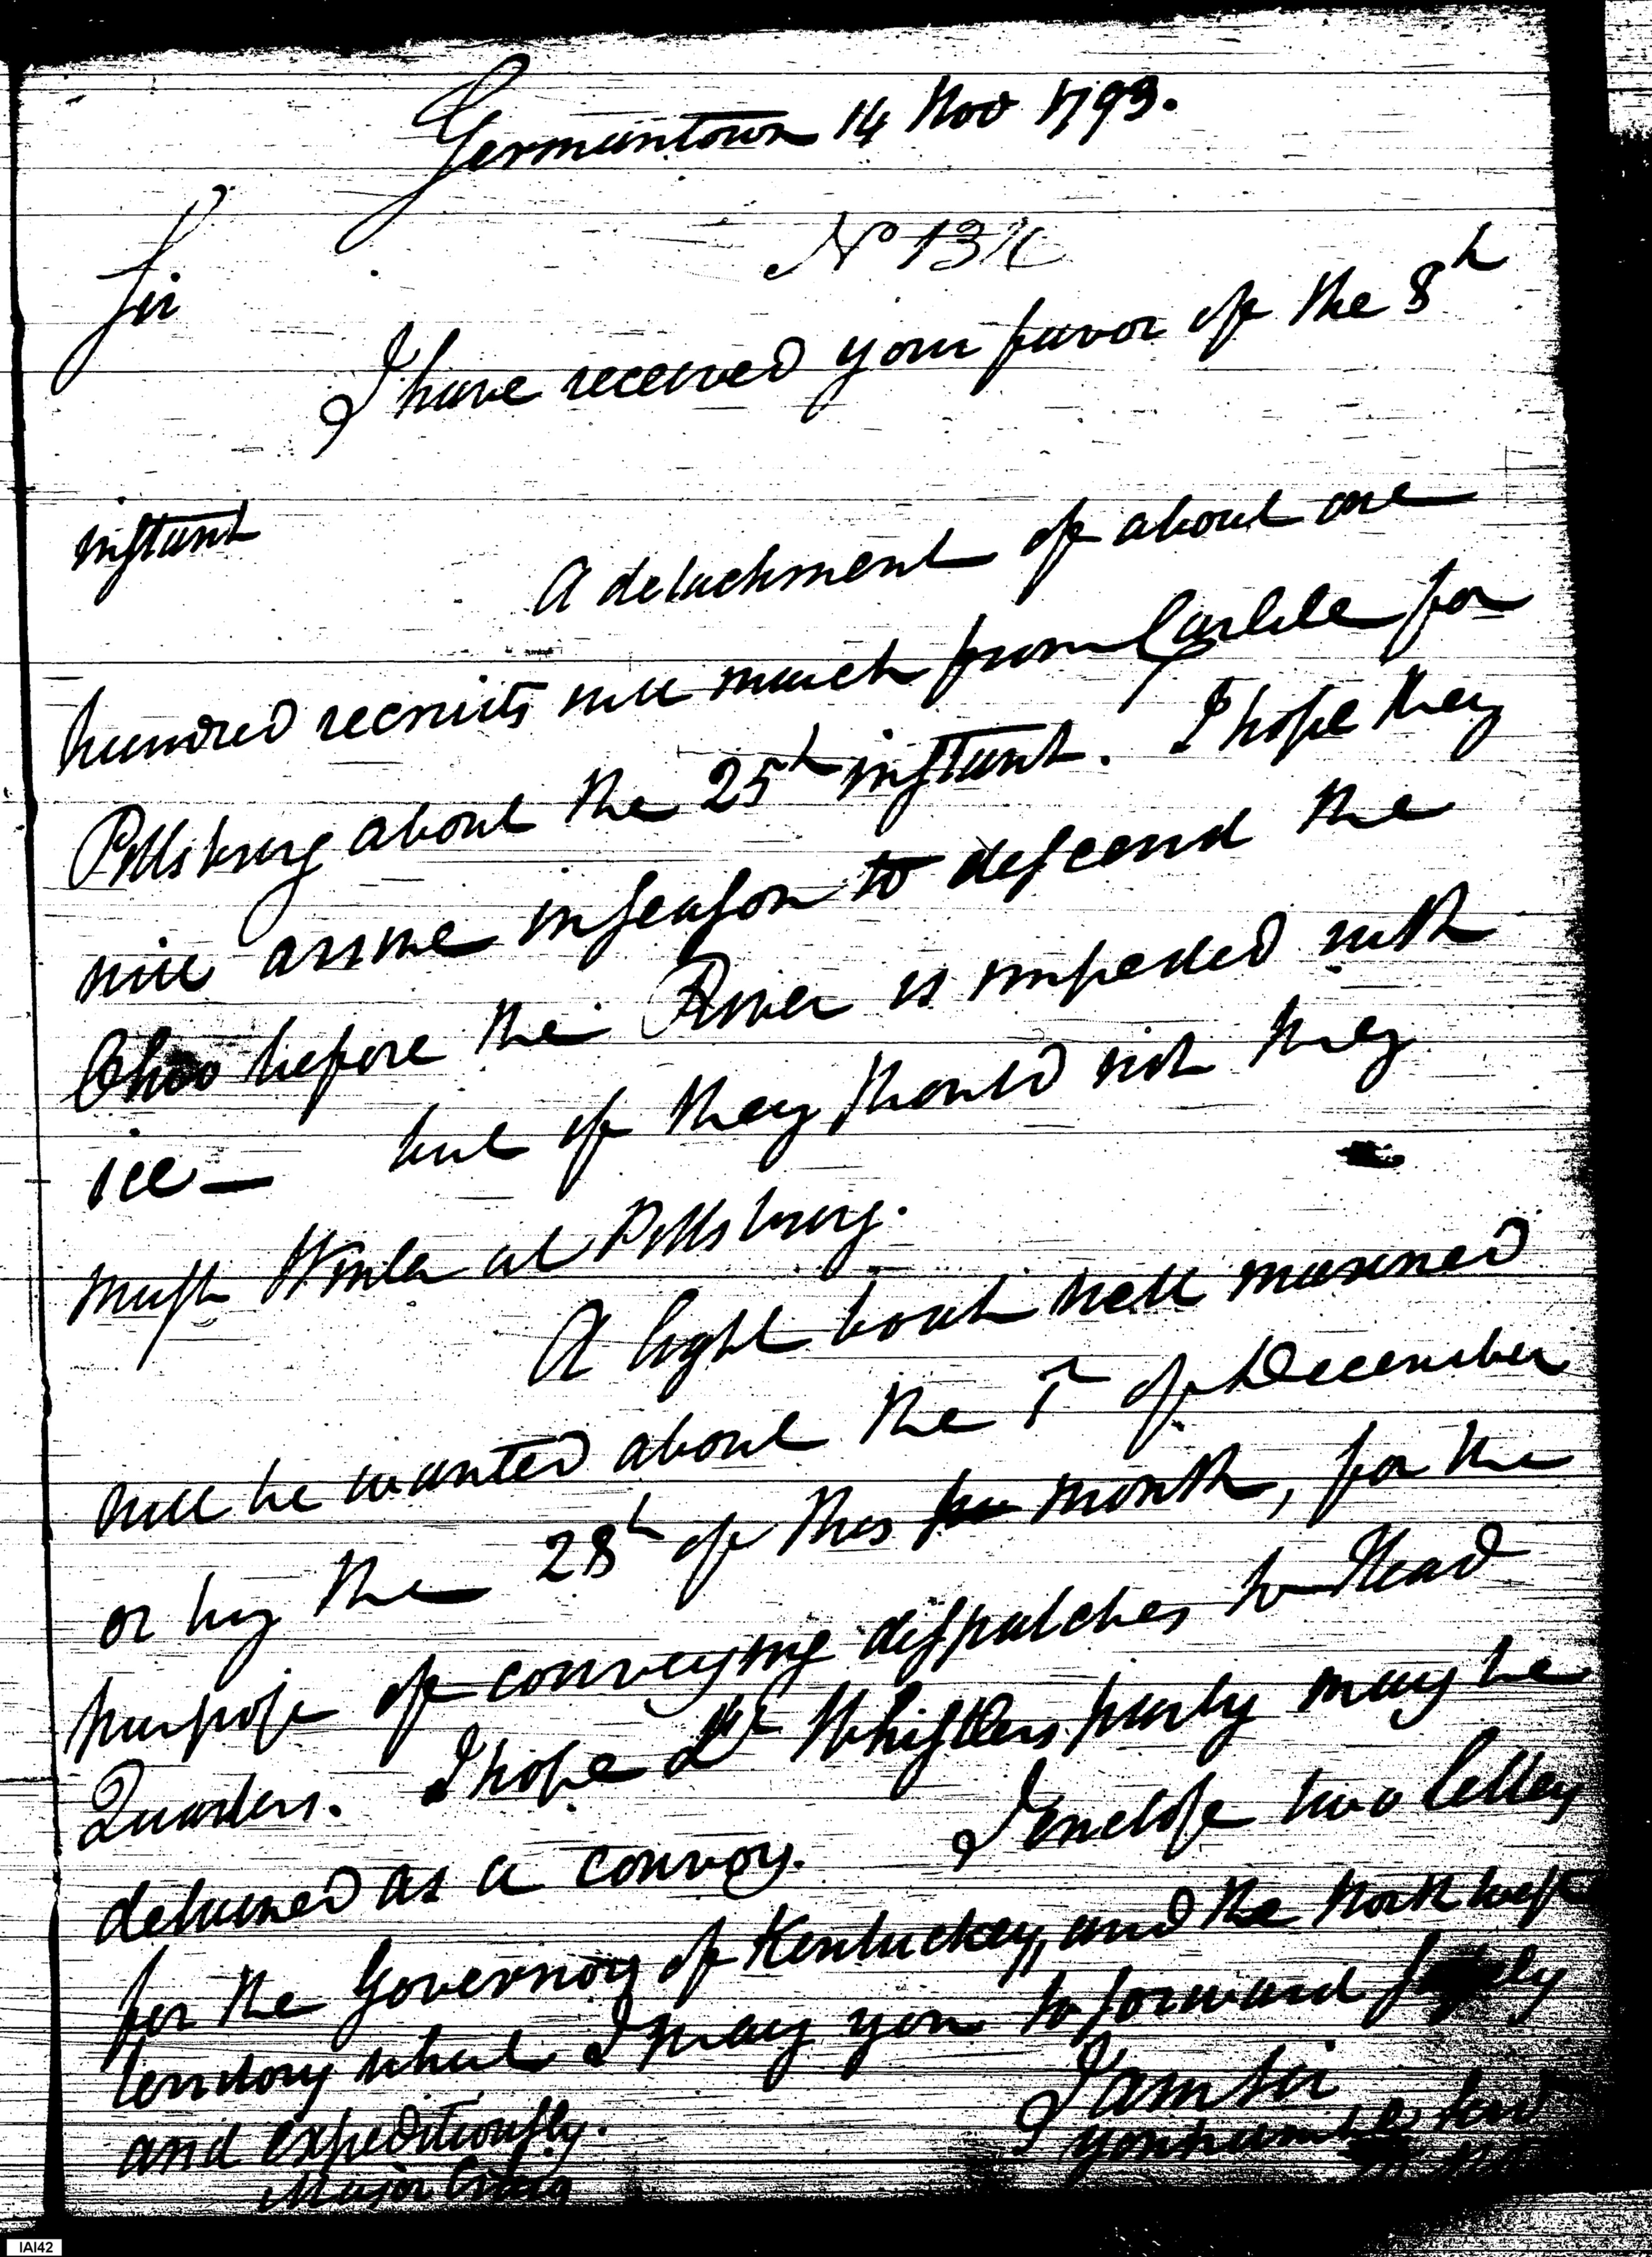 Germantown 14 Nov 1793.
No 13
Sir
I have received your favor of the 8h
instant
A detachment of about one
hundred recruits will march from Carlile for
Pittsburg about the 25h instant. I hope they
will arrive in season to descend the
Ohio before the River is impeded with
ice — but if they should not they
must Winter at Pittsburg.
A light boat well manned
will be wanted about the 1st of December
or by the 28h of this month, for the
purpose of conveying dispatches to Head
Quarters. I hope Lt Whistlers party may be
detained as a convoy. I enclose two letters
for the Governors of Kentuckey, and the North west
territory which I pray you to forward safely
and expeditiously.
I am Sir
your humble Servt
Major Craig
IAI42